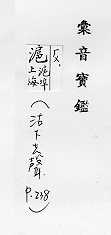 彙音寶鑑
5X、
滬 滬埠
上海
（沽下去聲
P.238）